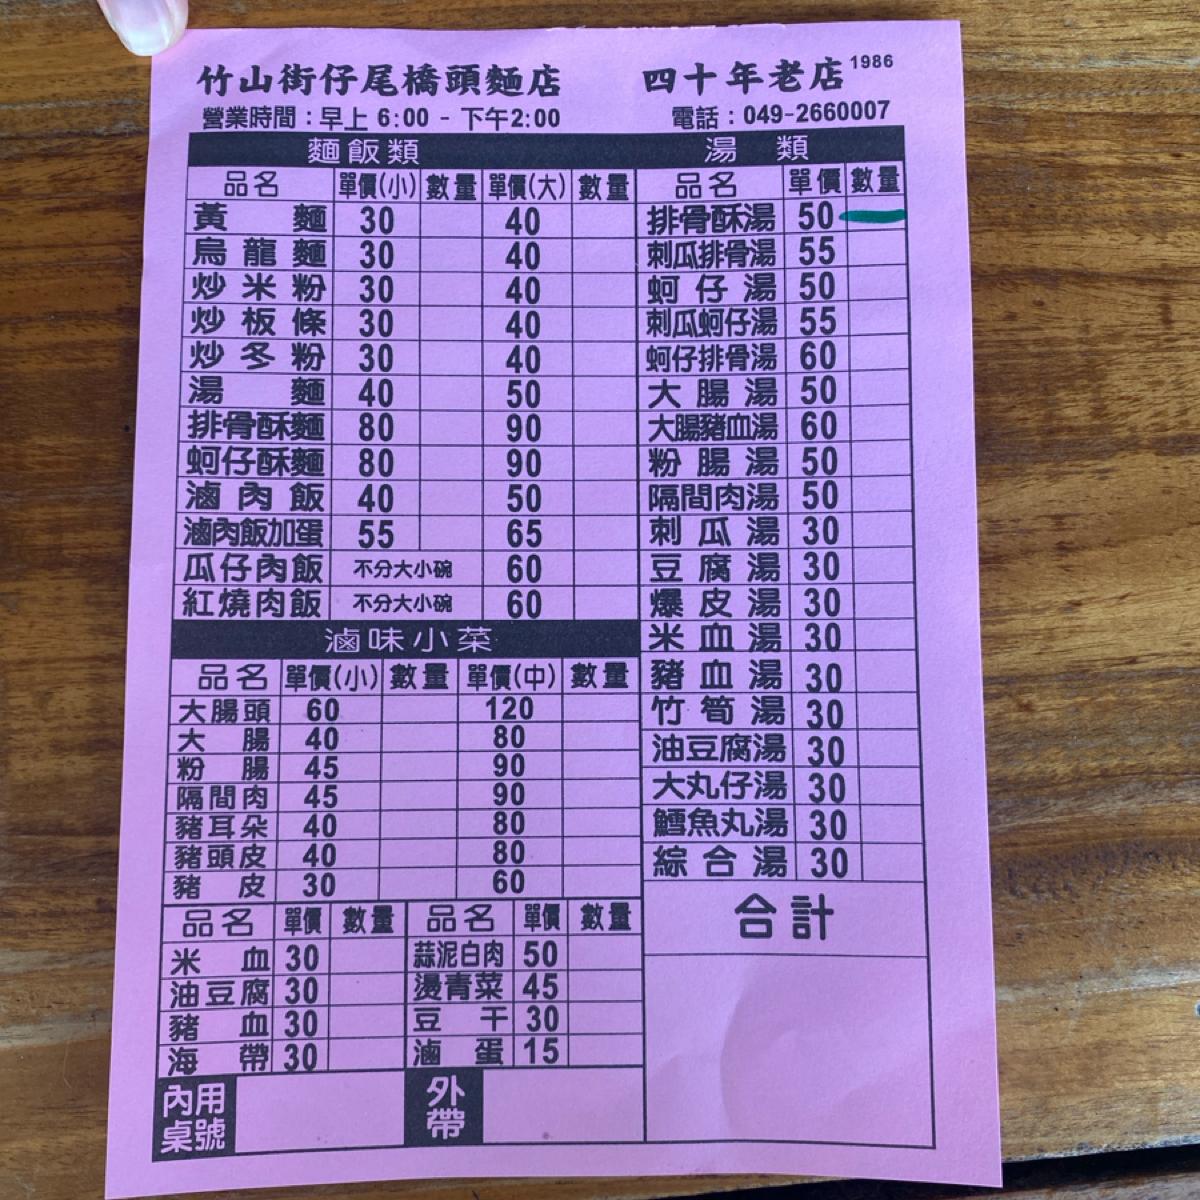 竹山街仔尾橋頭麵店 四十年老店 1986
營業時間：早上 6:00 - 下午2:00 電話：049-2660007
麵飯類
品名 單價(小) 數量 單價(大) 數量
黃麵 30 40
烏龍麵 30 40
炒米粉 30 40
炒板條 30 40
炒冬粉 30 40
湯麵 40 50
排骨酥麵 80 90
蚵仔酥麵 80 90
滷肉飯 40 50
滷肉飯加蛋 55 65
瓜仔肉飯 不分大小碗 60
紅燒肉飯 不分大小碗 60
滷味小菜
品名 單價(小) 數量 單價(中) 數量
大腸頭 60 120
大腸 40 80
粉腸 45 90
隔間肉 45 90
豬耳朵 40 80
豬頭皮 40 80
豬皮 30 60
品名 單價 數量 品名 單價 數量
米血 30 蒜泥白肉 50
油豆腐 30 燙青菜 45
豬血 30 豆干 30
海帶 30 滷蛋 15
內用桌號 外帶
湯類
品名 單價 數量
排骨酥湯 50
刺瓜排骨湯 55
蚵仔湯 50
刺瓜蚵仔湯 55
蚵仔排骨湯 60
大腸湯 50
大腸豬血湯 60
粉腸湯 50
隔間肉湯 50
刺瓜湯 30
豆腐湯 30
爆皮湯 30
米血湯 30
豬血湯 30
竹筍湯 30
油豆腐湯 30
大丸仔湯 30
鱈魚丸湯 30
綜合湯 30
合計